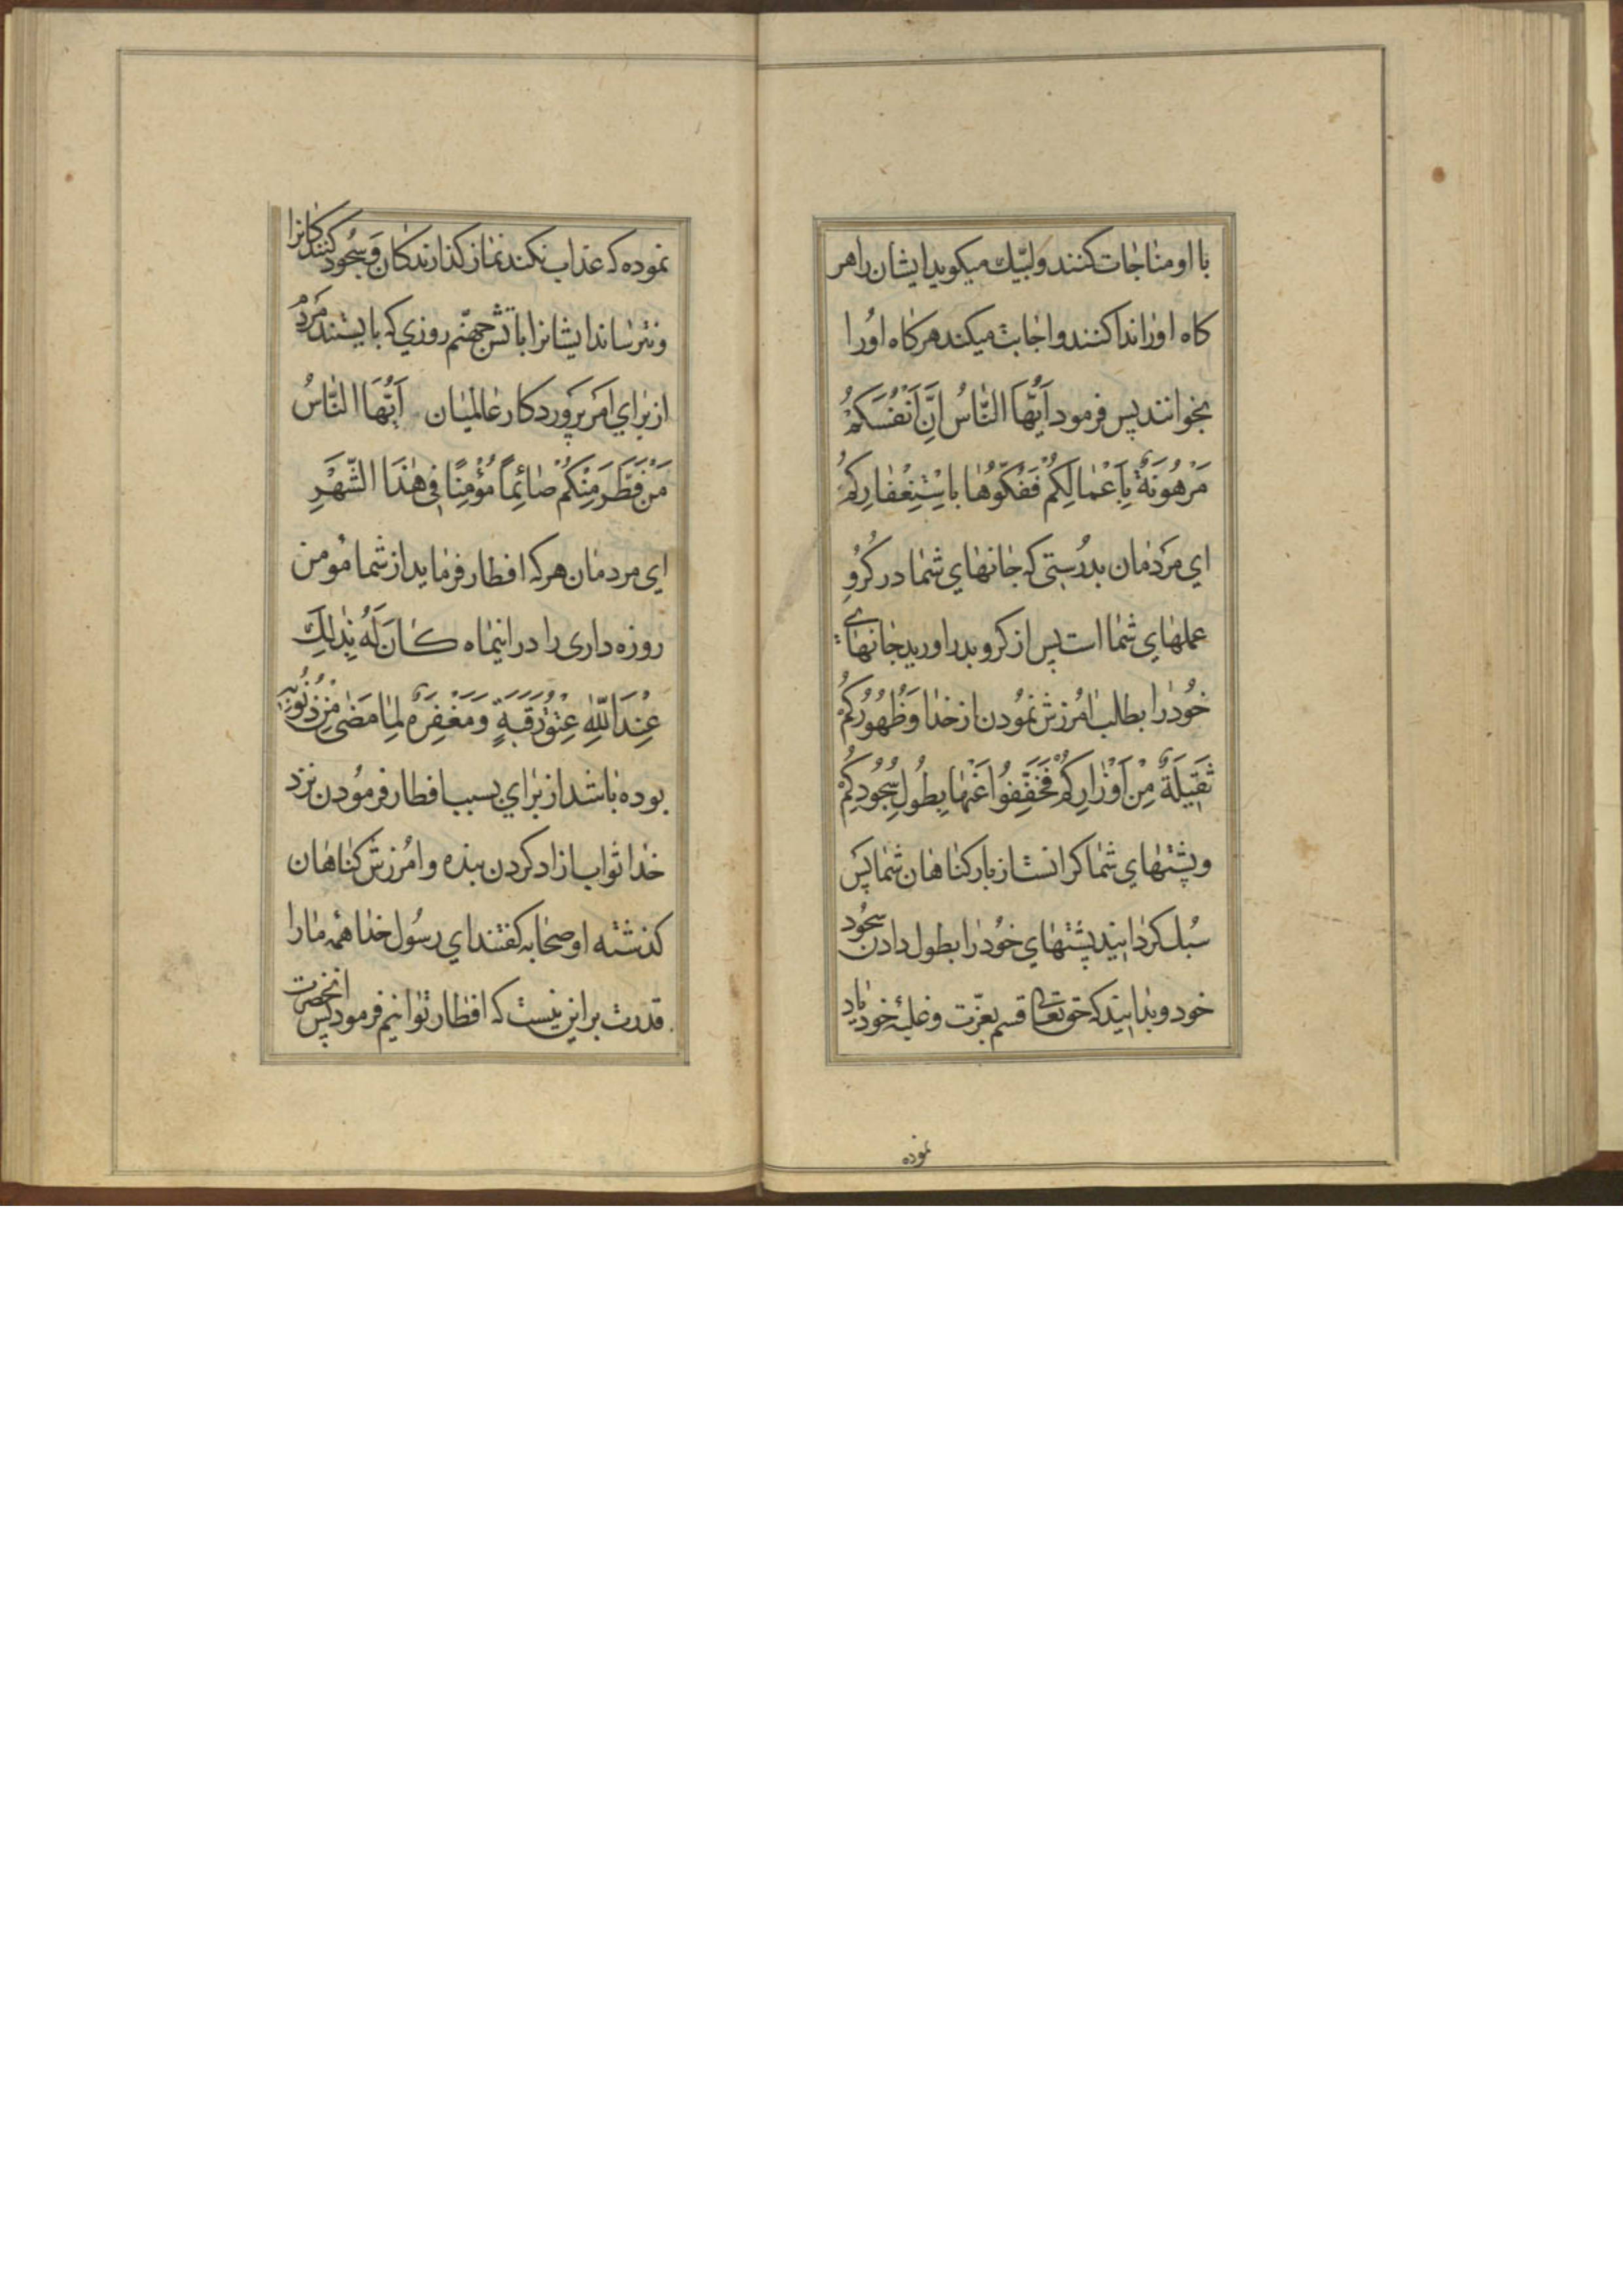 با او مناجات کنند و لبّیک میکوید ایشان را هر
کاه او را ندا کنند و اجابت میکند هر کاه او را
بخوانند پس فرمود اَیُّهَا النّاسُ اِنَّ اَنْفُسَکُمْ
مَرْهُونَةٌ بِاَعْمالِکُمْ فَفُکّوُها بِاسْتِغْفارِکُمْ
ای مردمان بدرستی که جانهای شما در کرو
عملهای شما است پس از کرو بدر اورید جانهای
خود را بطلب امرزش نمودن از خدا وَ ظُهُورُکُمْ
ثَقیلَةٌ مِنْ اَوْزارِکُمْ فَخَفِّفُوا عَنْها بِطُولِ سُجُودِکُمْ
و پشتهای شما کرانست از بار کناهان شما پس
سبک کردانید پشتهای خود را بطول دادن سجود
خود و بدانید که حق تعالی قسم بعزّت و غلبهٔ خود یاد
نموده
نموده که عذاب نکند نماز کذارندکان و سجود کنندکانرا
و نترساند ایشانرا باتش جهنّم روزی که بایستند مردم
از برای امر پروردکار عالمیان اَیُّهَا النّاسُ
مَنْ فَطَّرَ مِنْکُمْ صائِماً مُؤْمِنًا فی هٰذَا الشَّهْرِ
ای مردمان هر که افطار فرماید از شما مومن
روزه داری را در اینماه کانَ لَهُ بِذٰلِکَ
عِنْدَ اللّٰهِ عِتْقُ رَقَبَةٍ وَ مَغْفِرَةٌ لِما مَضٰی مِنْ ذُنُوبِهِ
بوده باشد از برای بسبب افطار فرمودن نزد
خدا ثواب ازاد کردن بنده و امرزش کناهان
کذشته او صحابه کفتند ای رسول خدا همه ما را
قدرت بر این نیست که افطار توانیم فرمود پس انحضرت